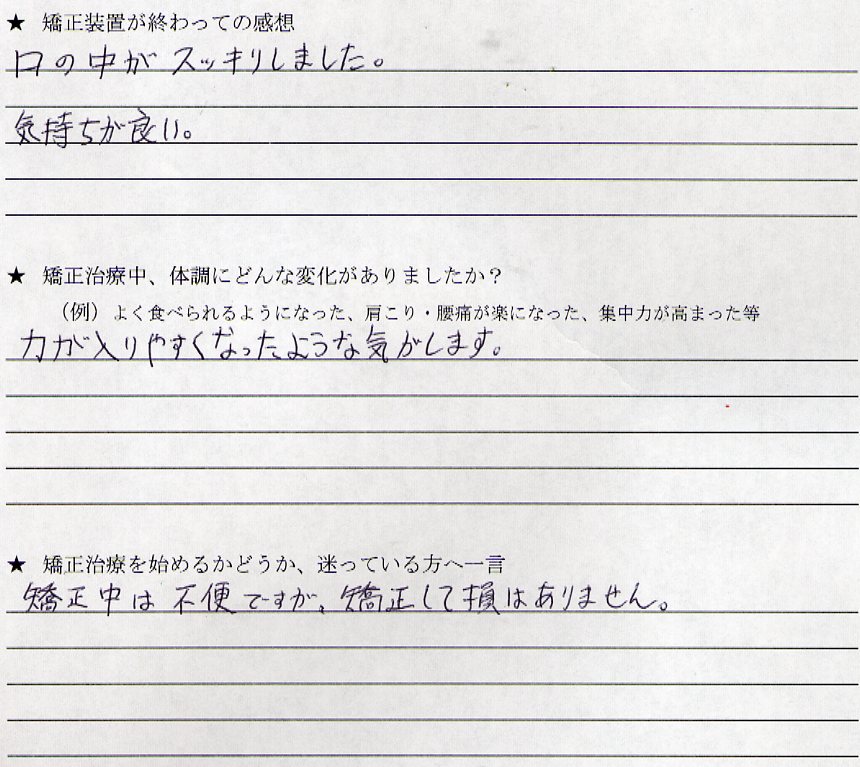 ★ 矯正装置が終わっての感想
口の中がスッキリしました。
気持ちが良い。
★ 矯正治療中、体調にどんな変化がありましたか？
（例）よく食べられるようになった、肩こり・腰痛が楽になった、集中力が高まった等
力が入りやすくなったような気がします。
★ 矯正治療を始めるかどうか、迷っている方へ一言
矯正中は不便ですが、矯正して損はありません。